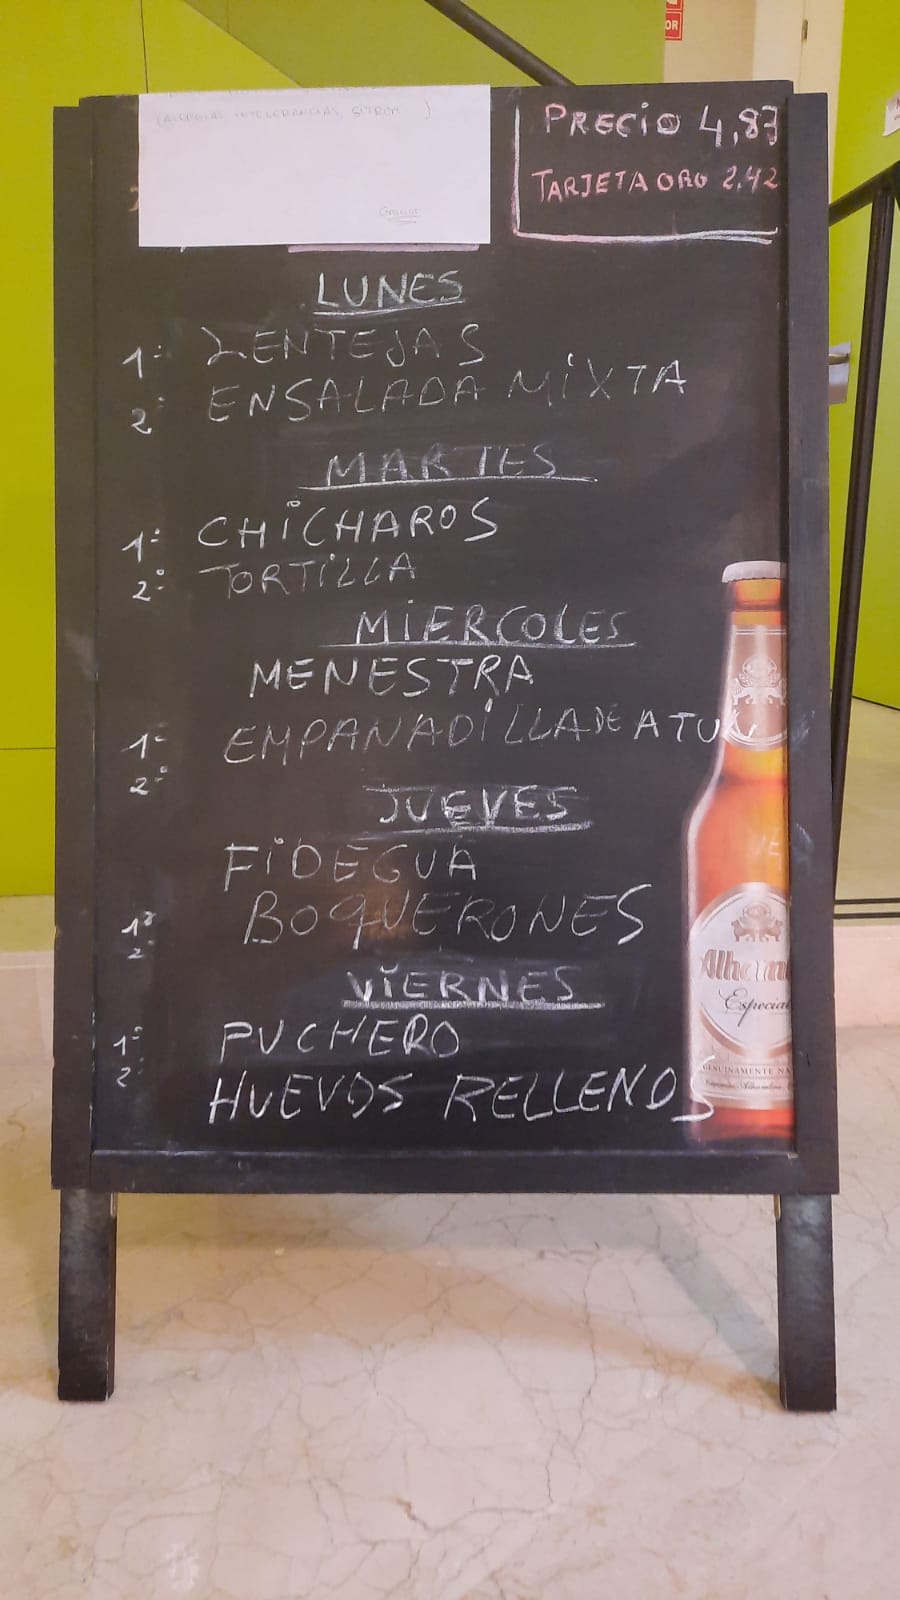 OR
(ALERGIAS, INTOLERANCIAS, SITROM )
Gracias
PRECIO 4,87
TARJETA ORO 2,42
LUNES
1º LENTEJAS
2º ENSALADA MIXTA
MARTES
1º CHICHAROS
2º TORTILLA
MIERCOLES
MENESTRA
1º EMPANADILLA DE ATUN
2º
JUEVES
FIDEGUA
BOQUERONES
1º
2º
VIERNES
1º PUCHERO
2º HUEVOS RELLENOS
VE
Alham
Especial
GENUINAMENTE NA